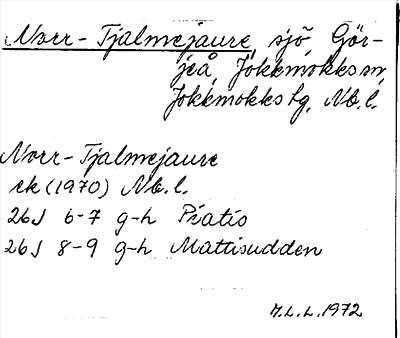 Norr-Tjalmejaure, sjö, Gör-
jeå, Jokkmokks sn,
Jokkmokks tg, Nb.l.
Norr-Tjalmejaure
ek (1970) Nb.l.
26J 6-7 g-h Piatis
26J 8-9 g-h Mattisudden
M.L.L. 1972